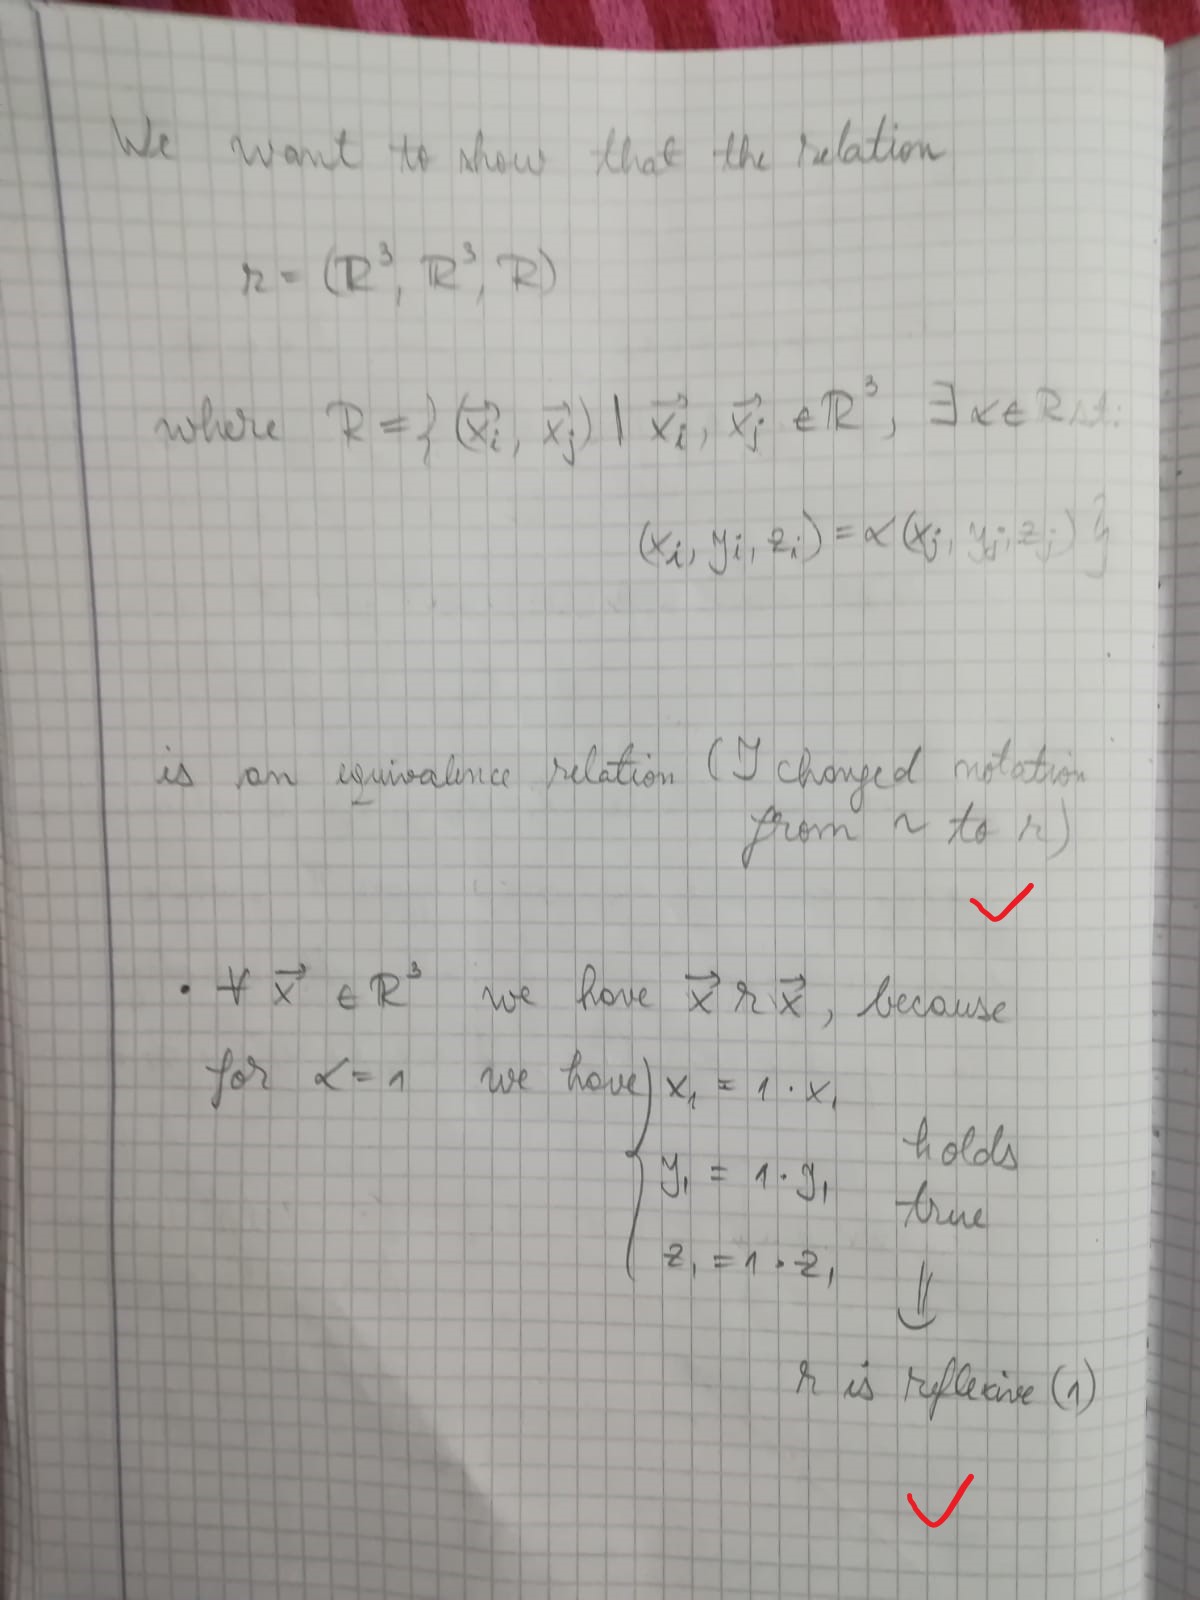 We want to show that the relation
r = (ℝ³, ℝ³, R)
where R = { (x⃗ᵢ, x⃗ⱼ) | x⃗ᵢ, x⃗ⱼ ∈ ℝ³, ∃ α ∈ ℝ s.t.
(xᵢ, yᵢ, zᵢ) = α (xⱼ, yⱼ, zⱼ) }
is an equivalence relation (I changed notation
from ~ to r)
• ∀ x⃗ ∈ ℝ³ we have x⃗ r x⃗, because
for α = 1 we have { x₁ = 1 · x₁
y₁ = 1 · y₁ holds
true
z₁ = 1 · z₁
⇓
r is reflexive (1)